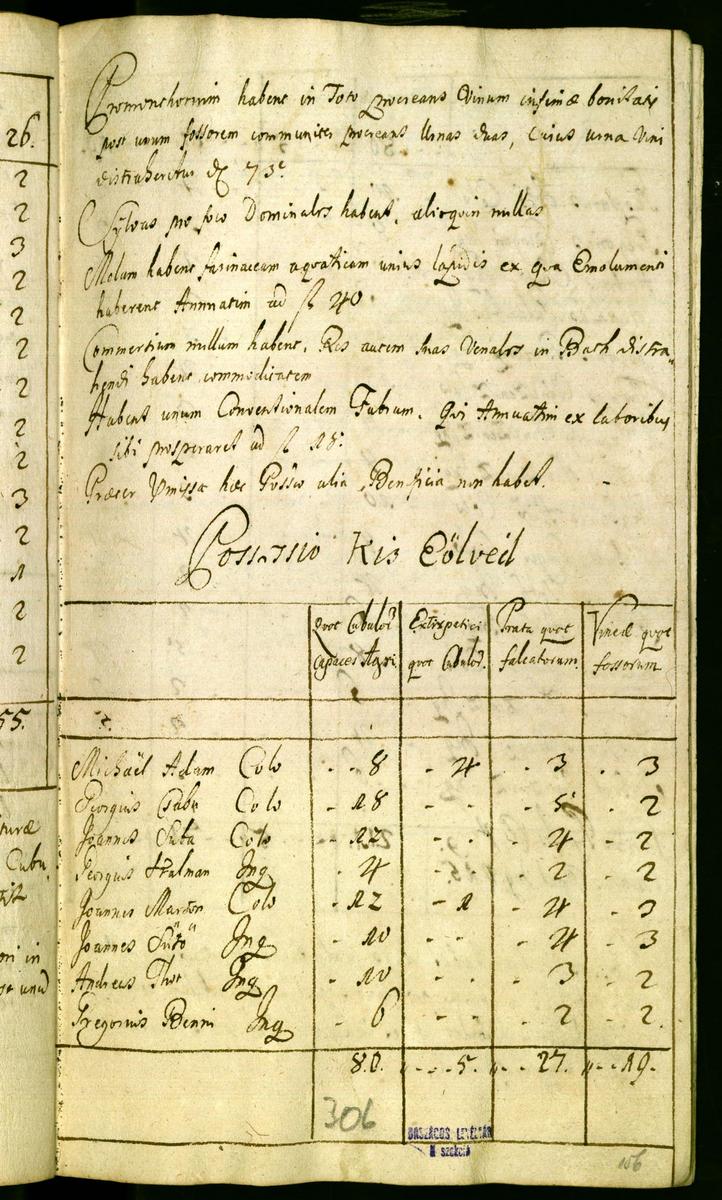 26.
2
2
3
2
2
2
2
2
2
3
2
1
2
2
55.
turæ
Cubu
oni in
Promonthorium habent in Toto procreans Vinum infimæ bonitatis
post unum fossorem communiter procreans Urnas duas, Cuius urna Vini
distraheretur d 75
Sylvas pro foco Dominales habent, alioquin nullas
Molam habent farinaceam aquaticam unius lapidis ex qua Emolumenti
haberent Annuatim ad f 40
Commertium nullum habent, Res autem suas Venales in Bath distra„
hendi habent commoditatem
Habent unum Conventionalem Fabrum. Qui Annuatim ex laboribus
sibi prosperaret ad f 18.
Præter præmissa hæc Possio alia Beneficia non habet.
Possessio Kis Eölved
quot Cubulor. Capaces Agri. Extirpatici quot Cubulor. Prata quot falcatorum. Vineæ quot fossorum
Michaël Adam Colo - - 8 - 4 - 3 - 3
Georgius Csaba Colo - 18 - - - 5 - 2
Joannes Suta Colo - 12 - - - 4 - 2
Georgius Halman Inq - 4 - - - 2 - 2
Joannes Marton Colo - 12 - 1 - 4 - 3
Joannes Sütö Inq - 10 - - - 4 - 3
Andreas Thot Inq - 10 - - - 3 - 2
Gregorius Benni Inq - 6 - - 2 - 2.
80. „ - - 5. „ - 27. „ - - 19.
306
ORSZÁGOS LEVÉLTÁR
N szekció
156